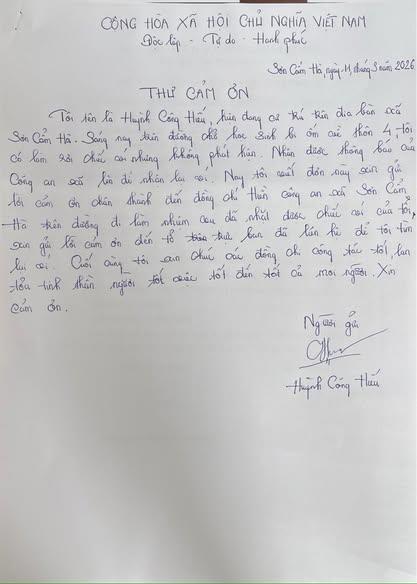 CỘNG HÒA XÃ HỘI CHỦ NGHĨA VIỆT NAM
Độc lập - Tự do - Hạnh phúc
Sơn Cẩm Hà, ngày 11, tháng 3 năm 2026
THƯ CẢM ƠN
Tôi tên là Huỳnh Công Hiếu, hiện đang cư trú trên địa bàn xã
Sơn Cẩm Hà. Sáng nay trên đường chở học sinh bị ốm về thôn 4, tôi
có làm rơi chiếc còi nhưng không phát hiện. Nhận được thông báo của
Công an xã lên để nhận lại còi. Nay tôi viết đơn này xin gửi
lời cảm ơn chân thành đến đồng chí Hiền công an xã Sơn Cẩm
Hà trên đường đi làm nhiệm vụ đã nhặt được chiếc còi của tôi,
xin gửi lời cảm ơn đến tổ ban đã liên hệ để tôi tìm
lại còi. Cuối cùng tôi xin chúc các đồng chí công tác tốt, lan
tỏa tinh thần người tốt việc tốt đến tất cả mọi người. Xin
cảm ơn.
Người gửi
Huỳnh Công Hiếu